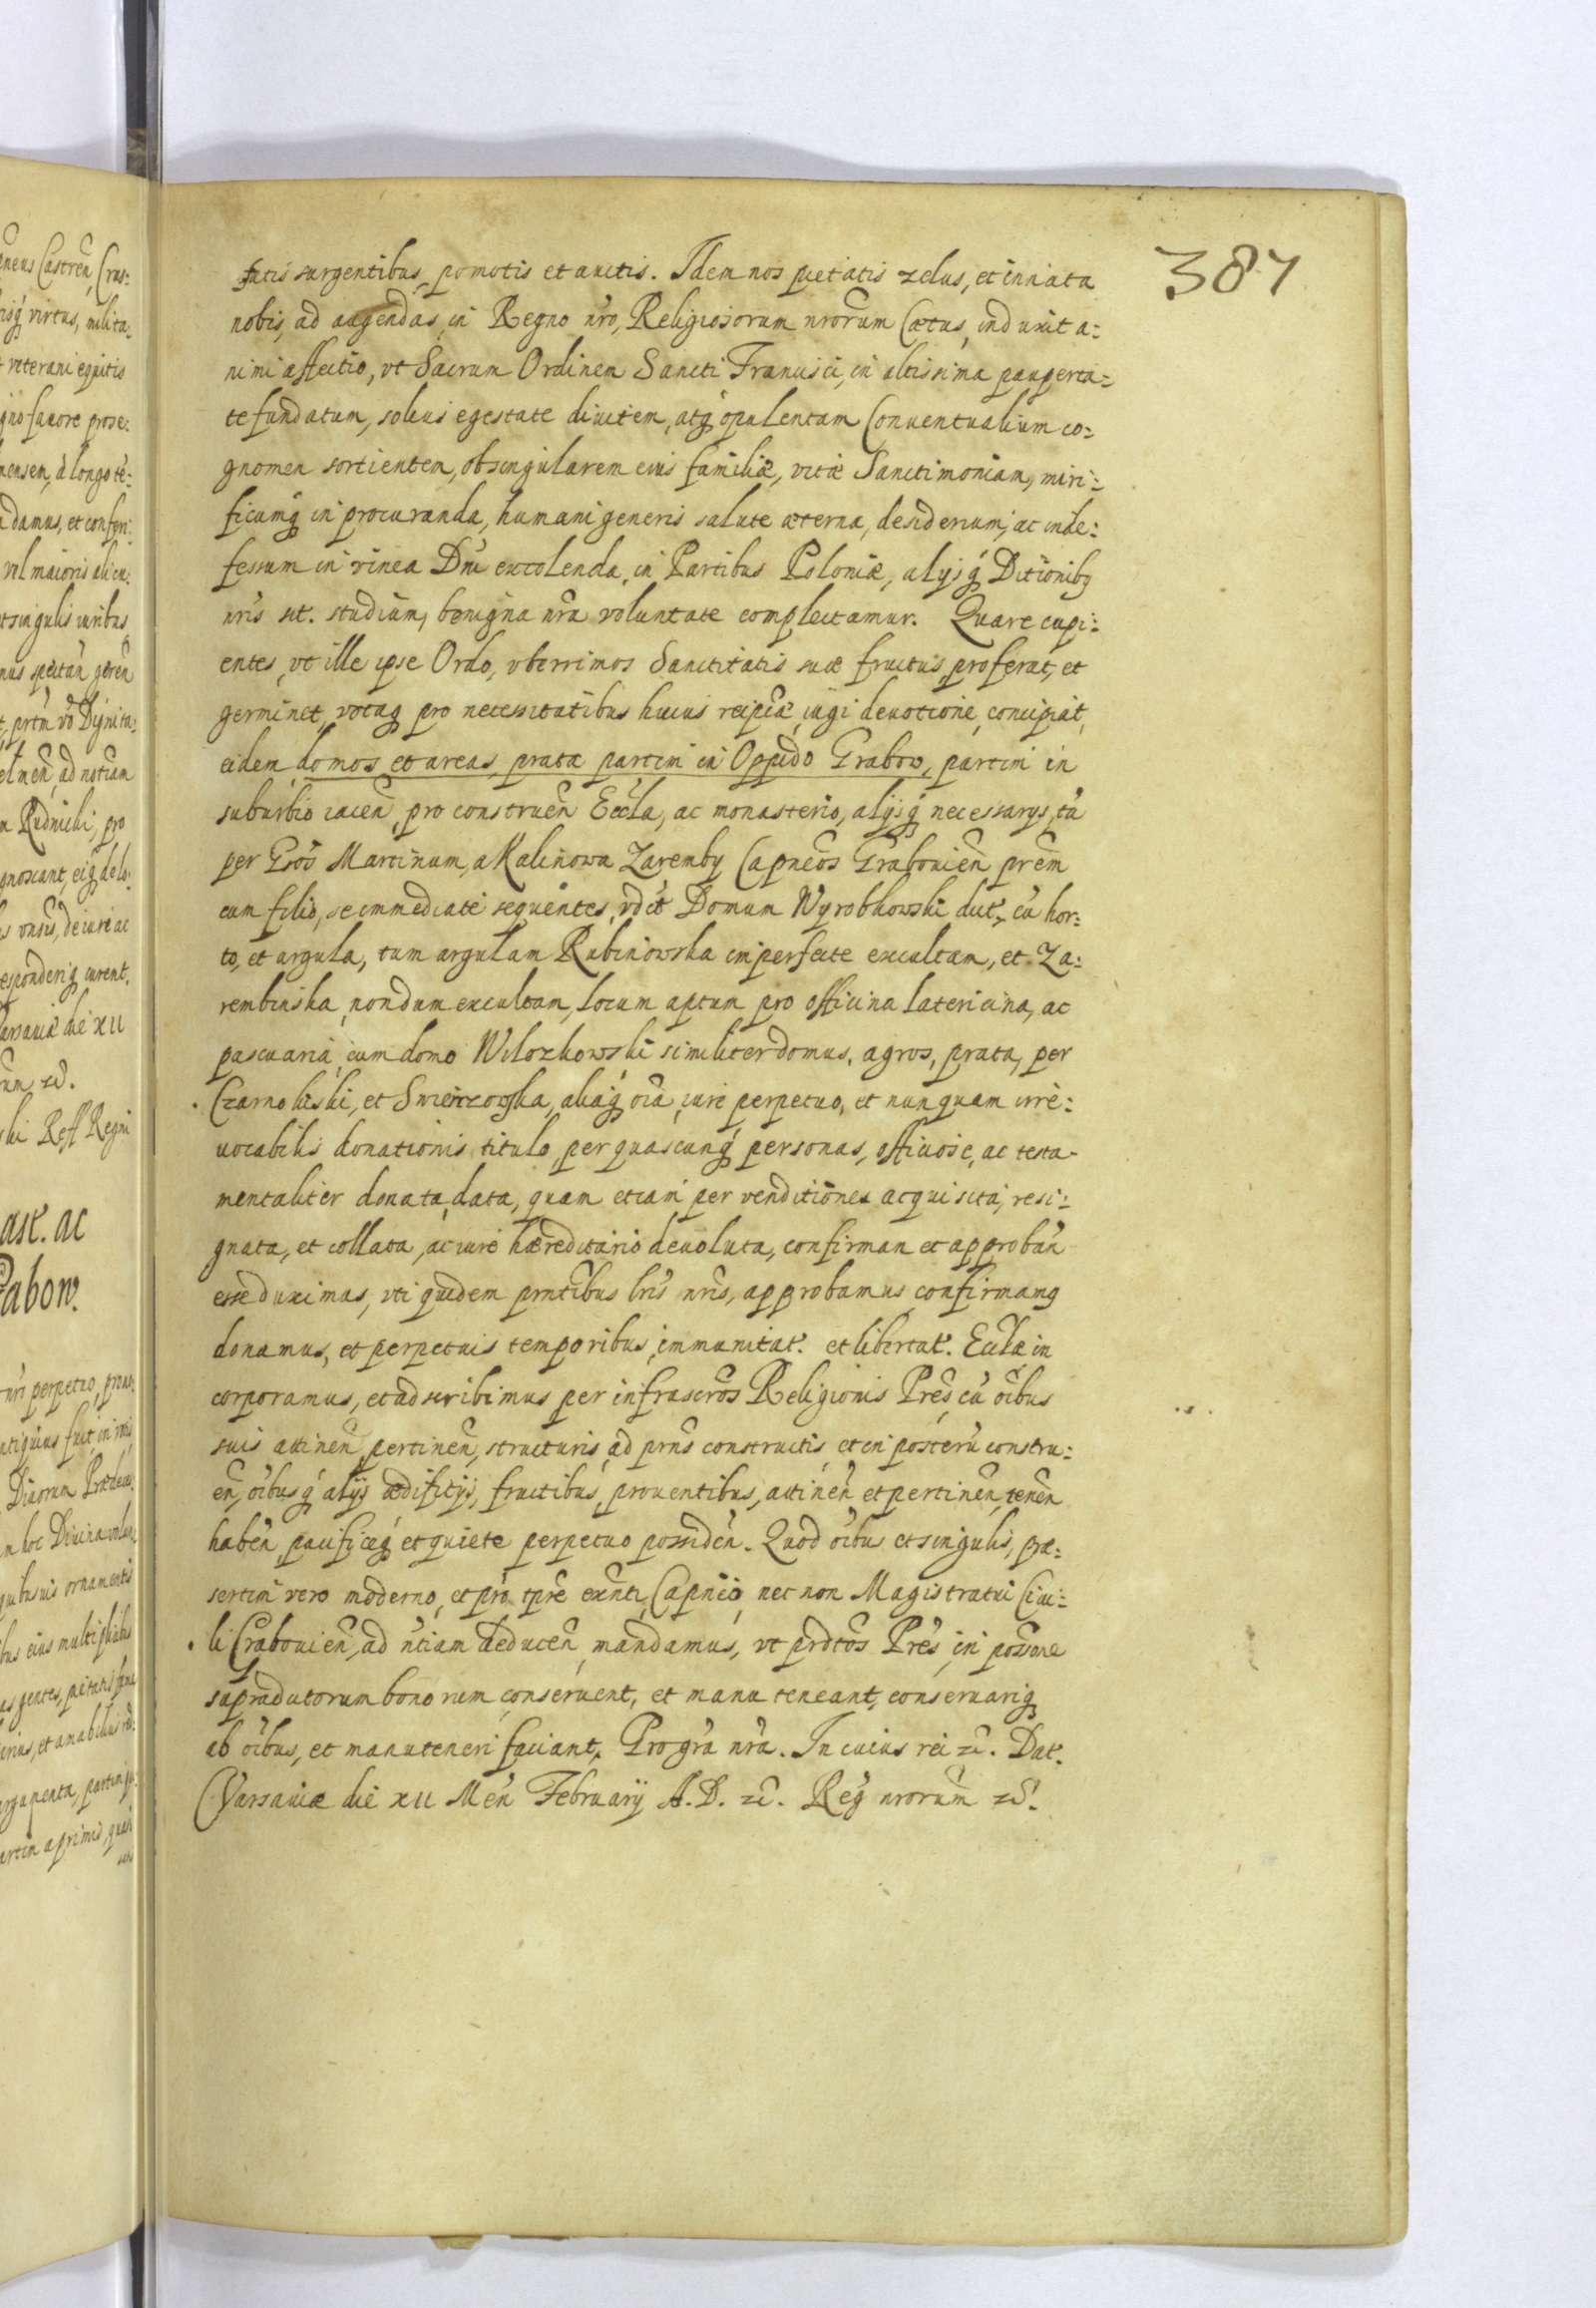 387
satis surgentibus, pomotis et auctis. Idem nos pietatis zelus, et innata
nobis, ad augendas in Regno nro, Religiosorum nrorum Cætus, induxit a:
nimi affectio, vt Sacrum Ordinem Sancti Francisci, in altissima pauperta:
te fundatum, solius egestate divitem, atq opulentam Conventualium co:
gnomen sortientem, ob singularem eius familiæ, vitæ Sanctimoniam, miri:
ficumq in procuranda, humani generis salute æterna, desiderium, ac inde:
fessum in vinea Dni excolenda, in Partibus Poloniæ, alijsq Ditionibq
nris sit. studium, benigna nra voluntate complectamur. Quare cupi:
entes, vt ille ipse Ordo, vberrimos Sanctitatis suæ fructus, proferat, et
germinet, votaq pro necessitatibus huius reipcæ iugi devotione, concipiat,
eidem domos et areas, prata partim in Oppido Grabow, partim in
suburbio iacen, pro construen Eccla, ac monasterio, alijsq necessarys, tu
per Gsos Martinum, a Kalinowa Zaremby Capneos Grabovien prem
cum filio, se immediate sequentes, vdct Domum Wyrobkowski dict, cu hor:
to, et argula, tum argulam Rubinowska imperfecte excultam, et Za:
rembinska, nondum excultam, locum aptum pro officina latericina, ac
pascuaria, cum domo Wilozkowski similiter domus, agros, prata, per
Czarnoliski, et Swierzowska, aliaq oia iure perpetuo, et nunquam irre:
vocabilis donationis titulo, per quascunq personas, officiose, ac testa-
mentaliter donata, data, quam etiam per venditiones acquisita, resi:
gnata, et collata, ac iure hæreditario devoluta, confirman et approban
esse duximus, vti quidem prntibus lris nris, approbamus, confirmamq
donamus, et perpetuis temporibus, immunitat. et libertat. Ecclæ in
corporamus, et adscribimus per infrascros Religionis Pres, cu oibus
suis attinen, pertinen, structuris, ad prns constructis, et in posteru constru:
en, oibusq alijs ædificijs, fructibus, proventibus, attinen et pertinen, tenen
haben, pacificeq et quiete perpetuo possiden. Quod oibus et singulis, præ:
sertim vero moderno, et pro tpre exnti, Capneo, nec non Magistratui Civi:
li Grabovien, ad ntiam deducen, mandamus, vt prdtos Pres, in possone
supradictorum bonorum conservent, et manu teneant, conservariq
ab oibus, et manuteneri faciant. Pro gra nra. In cuius rei zc. Dat.
Varsaviæ die XII Men February A. D. zc. Reg nrorum zc.